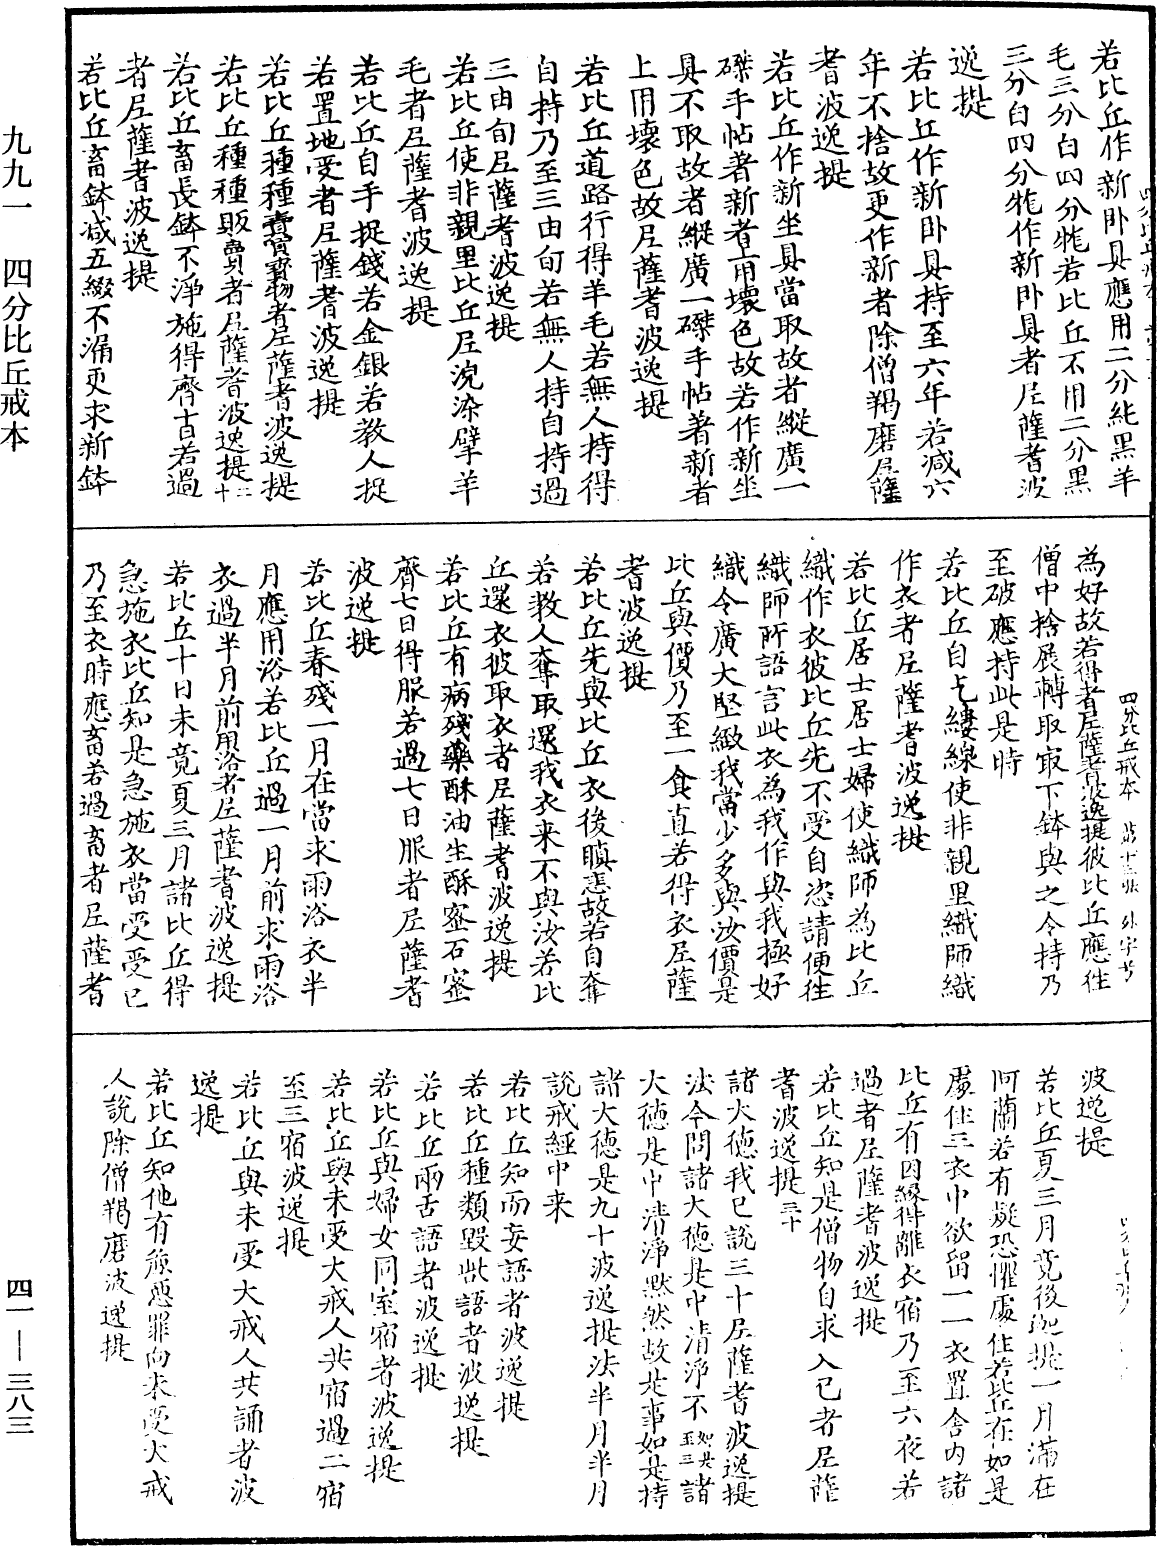 若比丘作新卧具應用二分純黑羊
毛三分白四分牻若比丘不用二分黑
三分白四分牻作新卧具者尼薩耆波
逸提
若比丘作新卧具持至六年若減六
年不捨故更作新者除僧羯磨尼薩
耆波逸提
若比丘作新坐具當取故者縱廣一
磔手帖著新者上用壞色故若作新坐
具不取故者縱廣一磔手帖著新者
上用壞色故尼薩耆波逸提
若比丘道路行得羊毛若無人持得
自持乃至三由旬若無人持自持過
三由旬尼薩耆波逸提
若比丘使非親里比丘尼浣染擘羊
毛者尼薩耆波逸提
若比丘自手捉錢若金銀若教人捉
若置地受者尼薩耆波逸提
若比丘種種賣買寶物者尼薩耆波逸提
若比丘種種販賣者尼薩耆波逸提二十
若比丘畜長鉢不淨施得齊十日若過
者尼薩耆波逸提
若比丘畜鉢減五綴不漏更求新鉢
為好故若得者尼薩耆波逸提彼比丘應往
僧中捨展轉取取下鉢與之令持乃
至破應持此是時
若比丘自乞縷線使非親里織師織
作衣者尼薩耆波逸提
若比丘居士居士婦使織師為比丘
織作衣彼比丘先不受自恣請便往
織師所語言此衣為我作與我極好
織令廣大堅緻我當少多與汝價是
比丘與價乃至一食直若得衣尼薩
耆波逸提
若比丘先與比丘衣後瞋恚故若自奪
若教人奪取還我衣来不與汝若比
丘還衣彼取衣者尼薩耆波逸提
若比丘有病殘藥酥油生酥蜜石蜜
齊七日得服若過七日服者尼薩耆
波逸提
若比丘春殘一月在當求雨浴衣半
月應用浴若比丘過一月前求雨浴
衣過半月前用浴者尼薩耆波逸提
若比丘十日未竟夏三月諸比丘得
急施衣比丘知是急施衣當受受已
乃至衣時應畜若過畜者尼薩耆
波逸提
若比丘夏三月竟後迦提一月滿在
阿蘭若有疑恐懼處住若比丘在如是
處住三衣中欲留一一衣置舍内諸
比丘有因緣得離衣宿乃至六夜若
過者尼薩耆波逸提
若比丘知是僧物自求入己者尼薩
耆波逸提三十
諸大德我已說三十尼薩耆波逸提
法今問諸大德是中清淨不如是至三諸
大德是中清淨黙然故是事如是持
諸大德是九十波逸提法半月半月
說戒經中来
若比丘知而妄語者波逸提
若比丘種類毀呰語者波逸提
若比丘兩舌語者波逸提
若比丘與婦女同室宿者波逸提
若比丘與未受大戒人共宿過二宿
至三宿波逸提
若比丘與未受大戒人共誦者波
逸提
若比丘知他有麁惡罪向未受大戒
人說除僧羯磨波逸提
四分比丘戒本
九九一　四分比丘戒本
四一—三八三